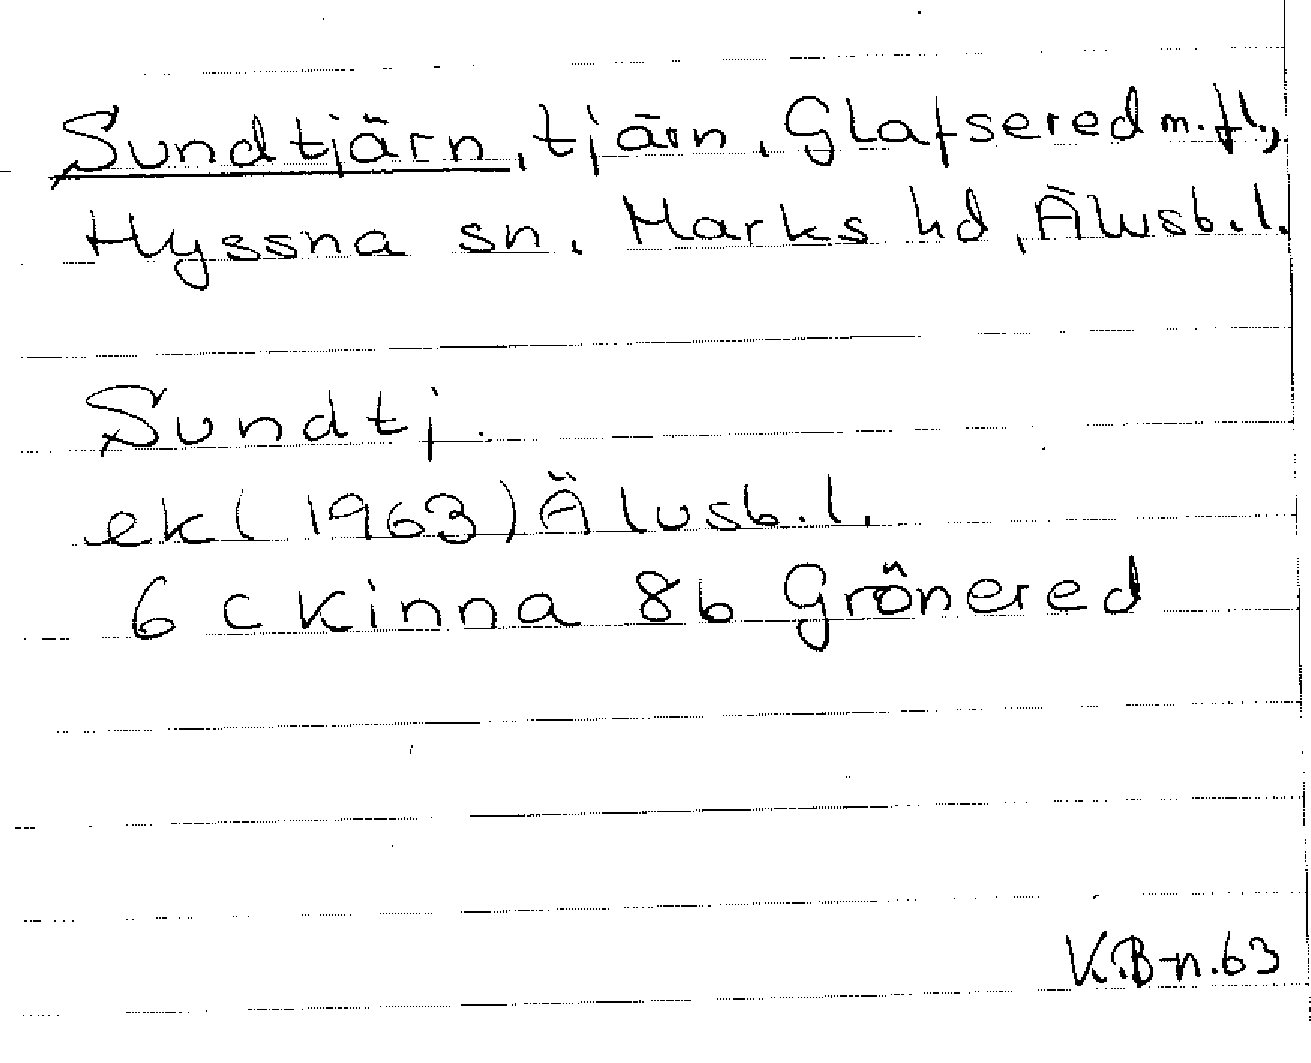 Sundtjärn, tjärn, Glafsered m.fl.,
Hyssna sn. Marks hd, Älvsb.l.
Sundtj.
ek (1963) Älvsb.l.
6 c Kinna 8b Grönered
K.B-n.63